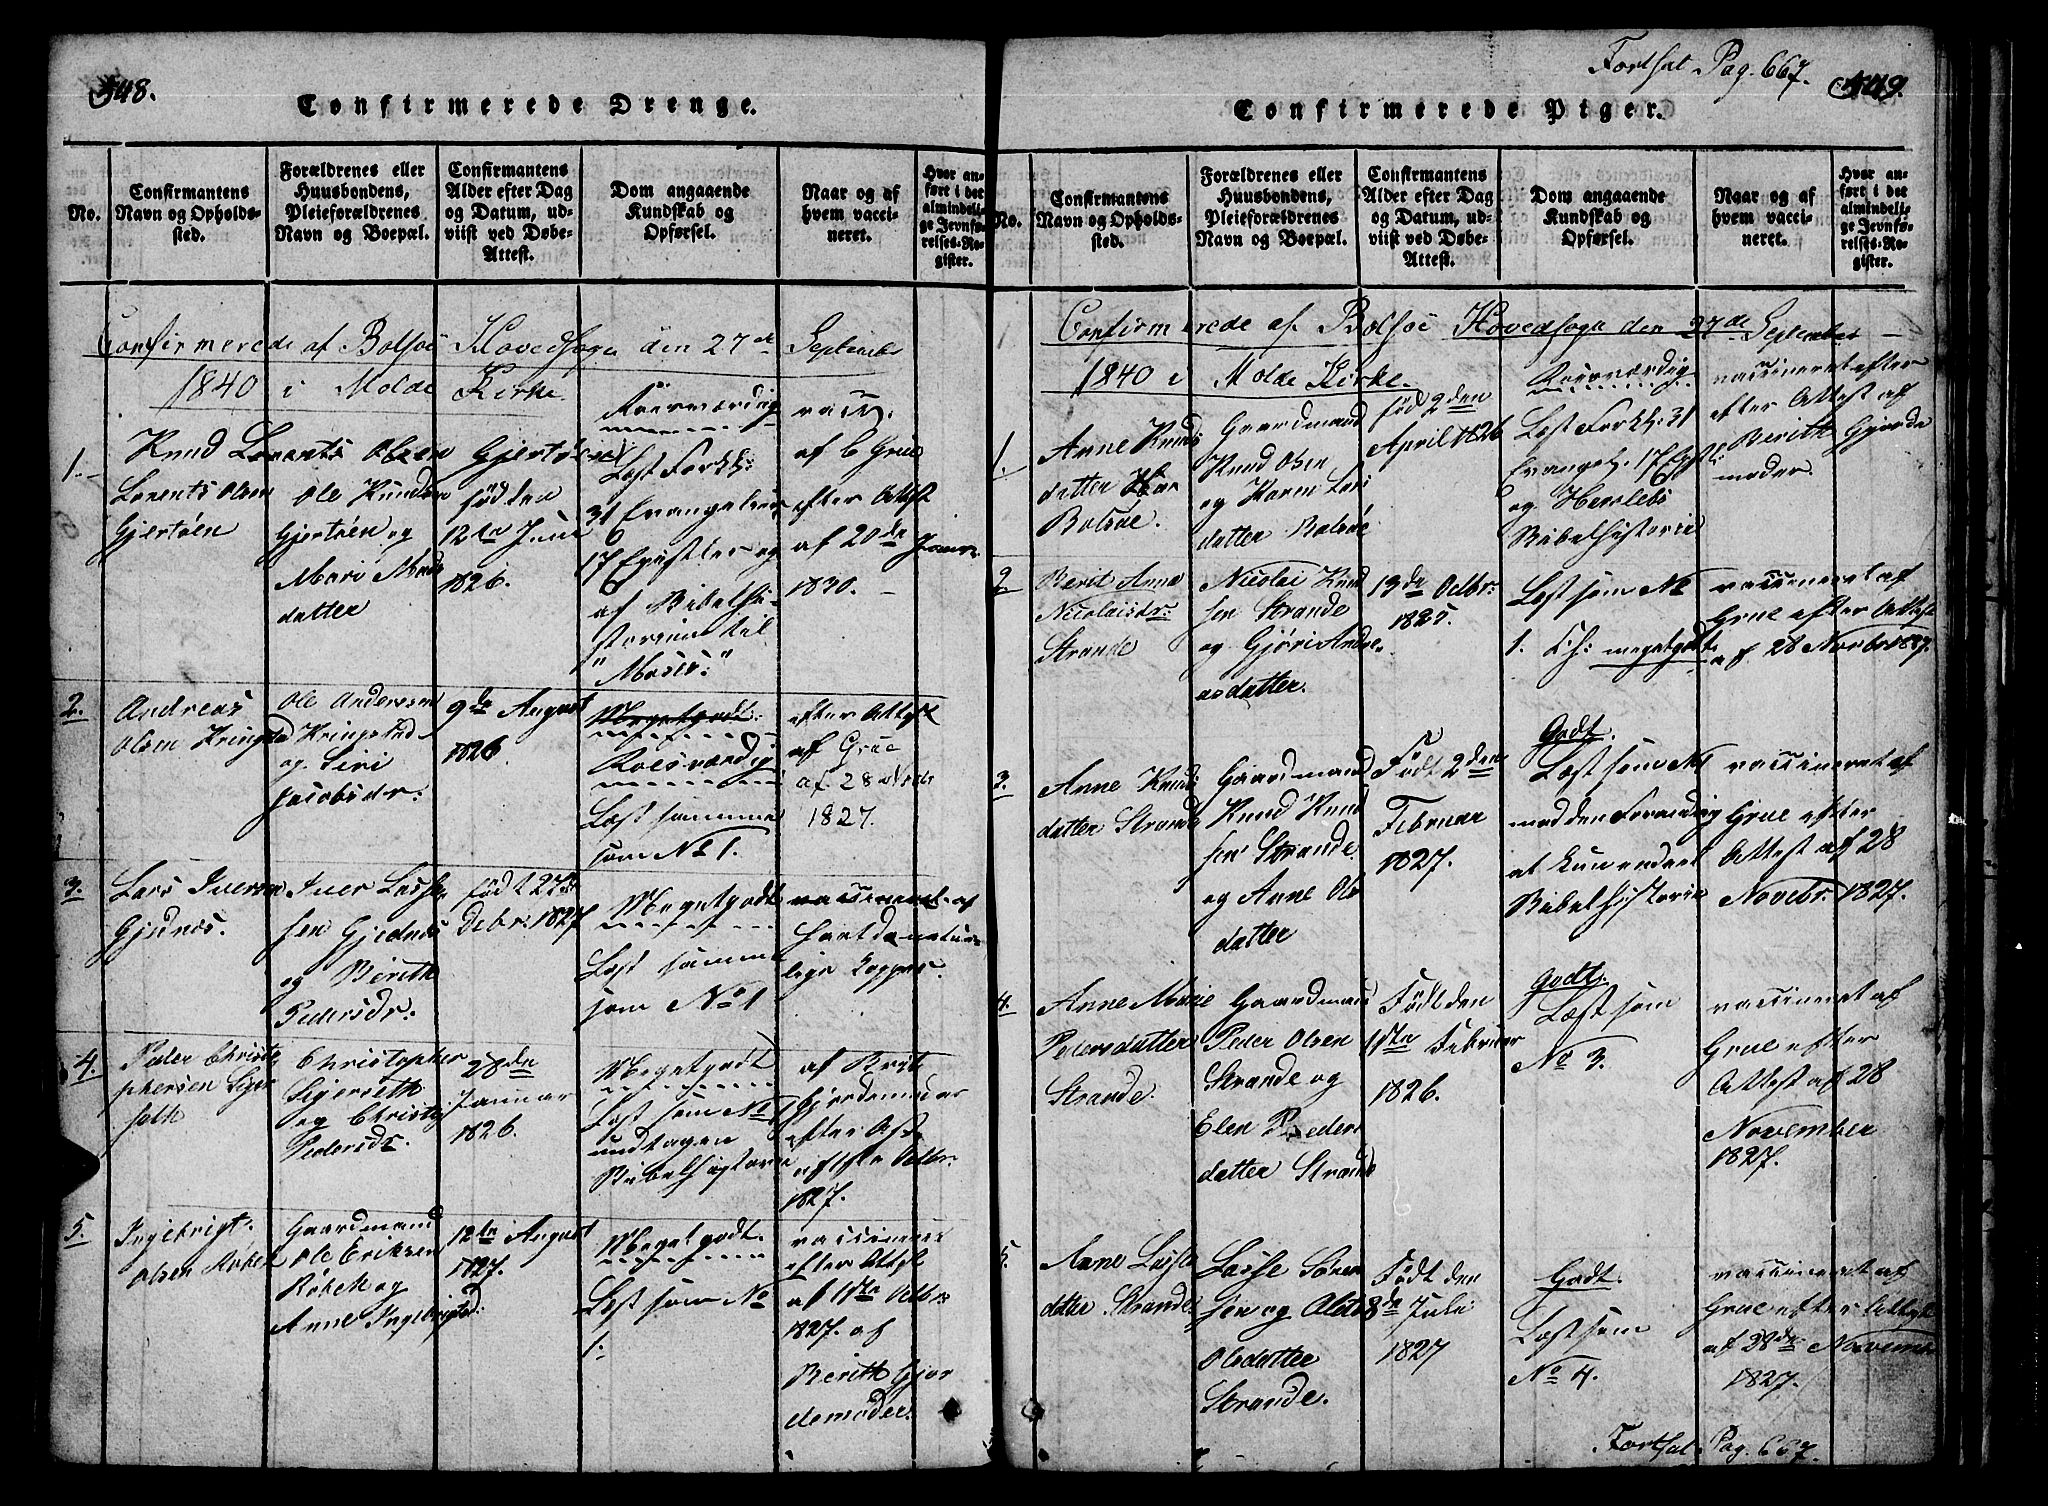 548.
Confirmerede Drenge.
No.
Confirmantens
Navn og Opholds-
sted.
Forældrenes eller
Huusbondens,
Pleieforældrenes
Navn og Boepæl.
Confirmantens
Alder efter Dag
og Datum, ud-
viist ved Døbe-
Attest.
Dom angaaende
Kundskab og
Opførsel.
Naar og af
hvem vacci-
neret.
Hvor an-
ført i det
almindeli-
ge Jevnfø-
relses-Re-
gister.
Confirmerede af Bolsöe Hovedsogn den 27de September
1840 i Molde Kirke.
1.
Knud Lorents Olsen
Lorents Olsen
Gjertöen
Ole Knudsen
Gjertöen og
Mari Mads
datter
Gjertöen
född den
12te Juni
1826.
Roesværdig
Læst Forkl:
31 Evangelier
17 Epistler og
af Bibelhi-
storien til
"Moses:"
vacc.
af C Grue
efter Attest
af 20de Januar
1830.
2.
Andreas
Olsen Kringstad
Ole Andersen
Kringstad
og Siri
Jacobsdr:
9de August
1826
Megetgodt:
Roesværdig
Læst samme
som No 1.
efter Attest
af Grue
af 28 Novbr
1827.
3.
Lars Iversen
Gjednæs.
Iver Lasse
sen Gjednæs
og Berith
Pedersdr:
född 27de
Debr: 1827
Megetgodt
Læst samme
som No 1
vaccineret af
havt de natur-
lige Kopper.
4.
Peder Christo
phersen Siger
seth
Christopher
Sigerseth
og Christi
Pedersdr.
28de
Januar
1826.
Megetgodt
Læst som No 1
undtagen
Bibelhistorie
af Berit
Gjordemoder
efter Att.
Octbr.
1827.
5.
Ingebrigt
Olsen Röbek
Gaardmand
Ole Eriksen
Röbek og
Anne Ingebrigtsd:
12te August
1827.
Megetgodt.
Læst som No
1.
vaccineret
efter Attest
af 17te Octbr
1827. af
Berith Gjor
demoder.
Fortsat Pag. 667.
549.
Confirmerede Piger.
No.
Confirmantens
Navn og Opholds-
sted.
Forældrenes eller
Huusbondens,
Pleieforældrenes
Navn og Boepæl.
Confirmantens
Alder efter Dag
og Datum, ud-
viist ved Døbe-
Attest.
Dom angaaende
Kundskab og
Opførsel.
Naar og af
hvem vacci-
neret.
Hvor an-
ført i det
almindeli-
ge Jevnfø-
relses-Re-
gister.
Confirmerede af Bolsöe Hovedsogn den 27de September
1840 i Molde Kirke.
1.
Anne Knuds
datter
Bolsöe.
Gaardmand
Knud Olsen
og Karen Lars
datter Bolsöe
född 2den
April 1826
Roesværdig
Læst Forkl: 31
Evangel. 17 Epstl:
og Herslebs
Bibelhistorie
vaccineret efter
efter Attest af
Berith Gjorde
moder.
2.
Berit Anne
Nicolaisdr:
Strande
Nicolai Knud
sen Strande
og Gjöri Andre
asdatter.
13de Octbr:
1825.
Læst som No
1. Ch: megetgodt
vaccineret af
Grue efter Attest
af 28 Novbr 1827.
3.
Anne Knuds
datter Strande
Gaardmand
Knud Knud
sen Strande
og Anne Ols
datter
Födt 2den
Februar
1827.
Godt.
Læst som No 1
med den Forandring
at kun endeel
Bibelhistorie
vaccineret af
Grue efter
Attest af 28
Novebr. 1827.
4.
Anne Marie
Pedersdatter
Strande.
Gaardmand
Peder Olsen
Strande og
Elen Peders
datter Strande
Födt den
17te Februar
1826.
Godt.
Læst som
No 3.
vaccineret af
Grue efter
Attest af 28
November
1827.
5.
Anne Lasse
datter Strande
Lasse Sören
sen og
Olsdatter
Strande.
Födt den
8de Juli
1827
Godt.
Læst som
No 4.
vaccineret af
Grue efter Attest
af 28de Novembr
1827.
Fortsat Pag. 667.